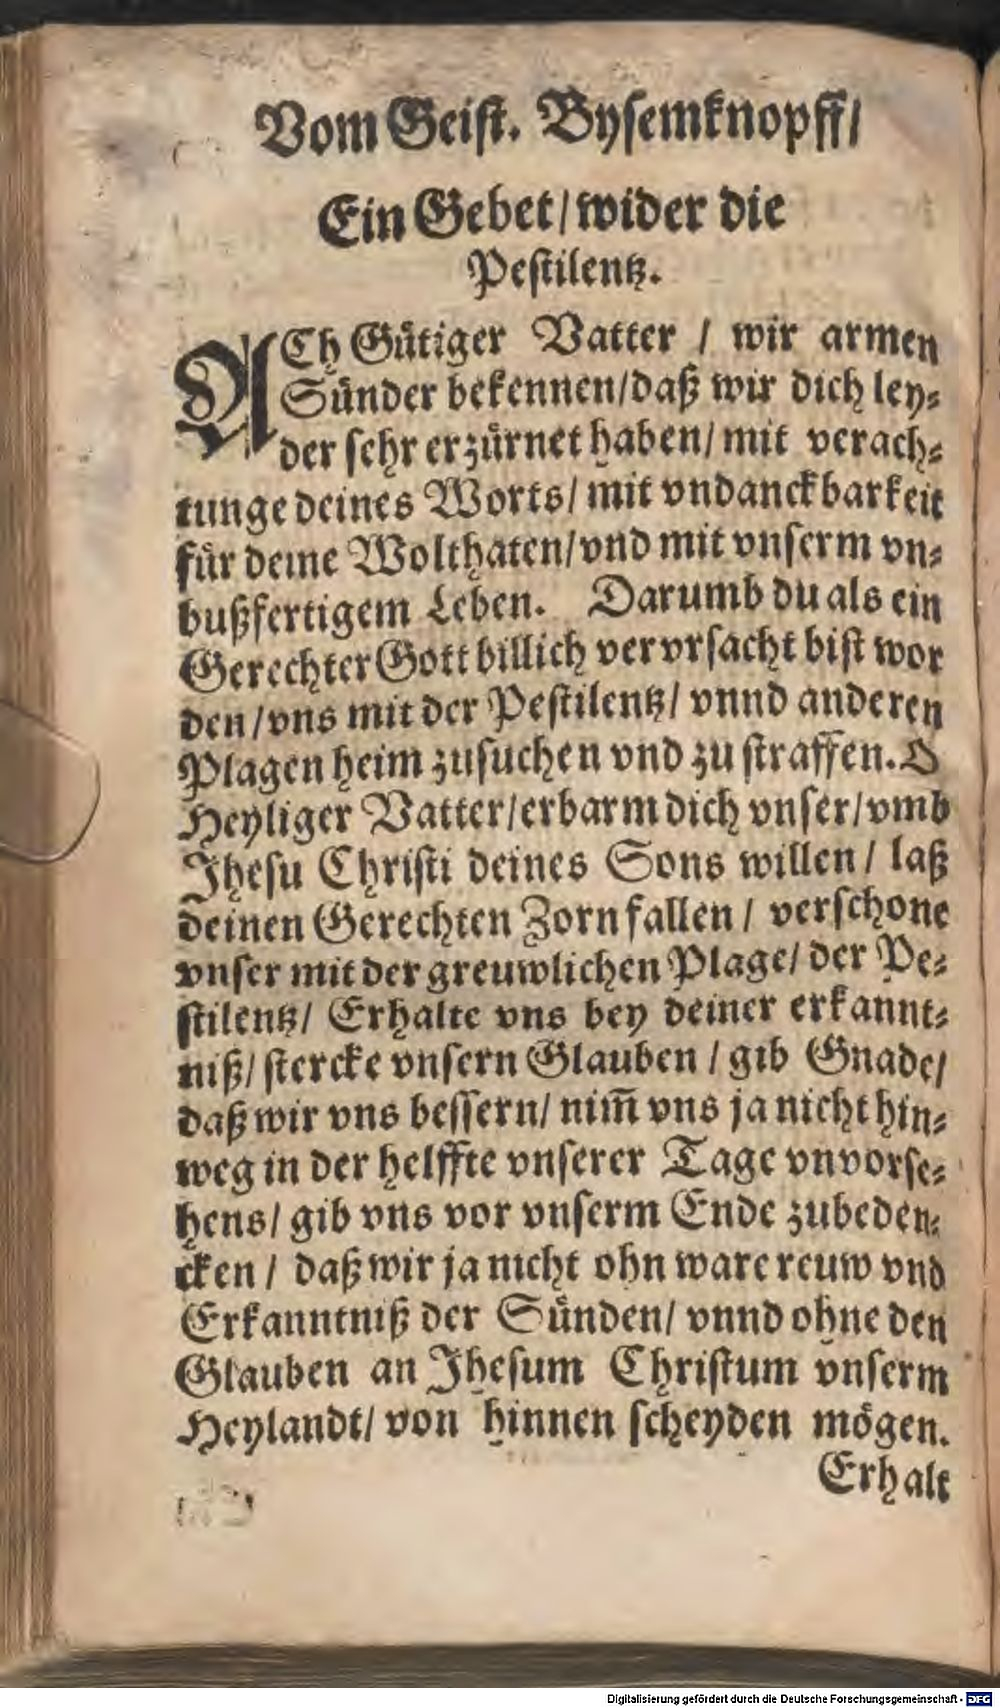 Vom Geist. Bysemknopff/
Ein Gebet/ wider die
Pestilentz.
ACh Gütiger Vatter / wir armen
Sünder bekennen/ daß wir dich ley-
der sehr erzürnet haben/ mit verach-
tunge deines Worts/ mit vndanckbarkeit
für deine Wolthaten/ vnd mit vnserm vn-
bußfertigem Leben. Darumb du als ein
Gerechter Gott billich vervrsacht bist wor
den/ vns mit der Pestilentz/ vnnd anderen
Plagen heim zusuchen vnd zu straffen. O
Heyliger Vatter/ erbarm dich vnser/ vmb
Jhesu Christi deines Sons willen/ laß
deinen Gerechten Zorn fallen/ verschone
vnser mit der greuwlichen Plage/ der Pe-
stilentz/ Erhalte vns bey deiner erkannt-
niß/ stercke vnsern Glauben / gib Gnade/
daß wir vns bessern/ nim̄ vns ja nicht hin-
weg in der helffte vnserer Tage vnvorse-
hens/ gib vns vor vnserm Ende zubeden-
cken/ daß wir ja nicht ohn ware reuw vnd
Erkanntniß der Sünden/ vnnd ohne den
Glauben an Jhesum Christum vnserm
Heylandt/ von hinnen scheyden mögen.
Erhalt
Digitalisierung gefördert durch die Deutsche Forschungsgemeinschaft - DFG